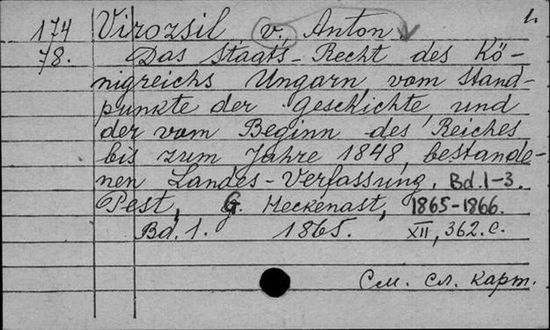 174 Virozsil, v. Anton 1.
78. Das Staats-Recht des Kö-
nigreichs Ungarn, vom Stand-
punkte der Geschichte und
der vom Beginn des Reiches
bis zum Jahre 1848, bestande-
nen Landes-Verfassung. Bd. 1-3.
Pest, G. Heckenast, 1865-1866.
Bd. 1. 1865. XII, 362 с.
См. сл. карт.